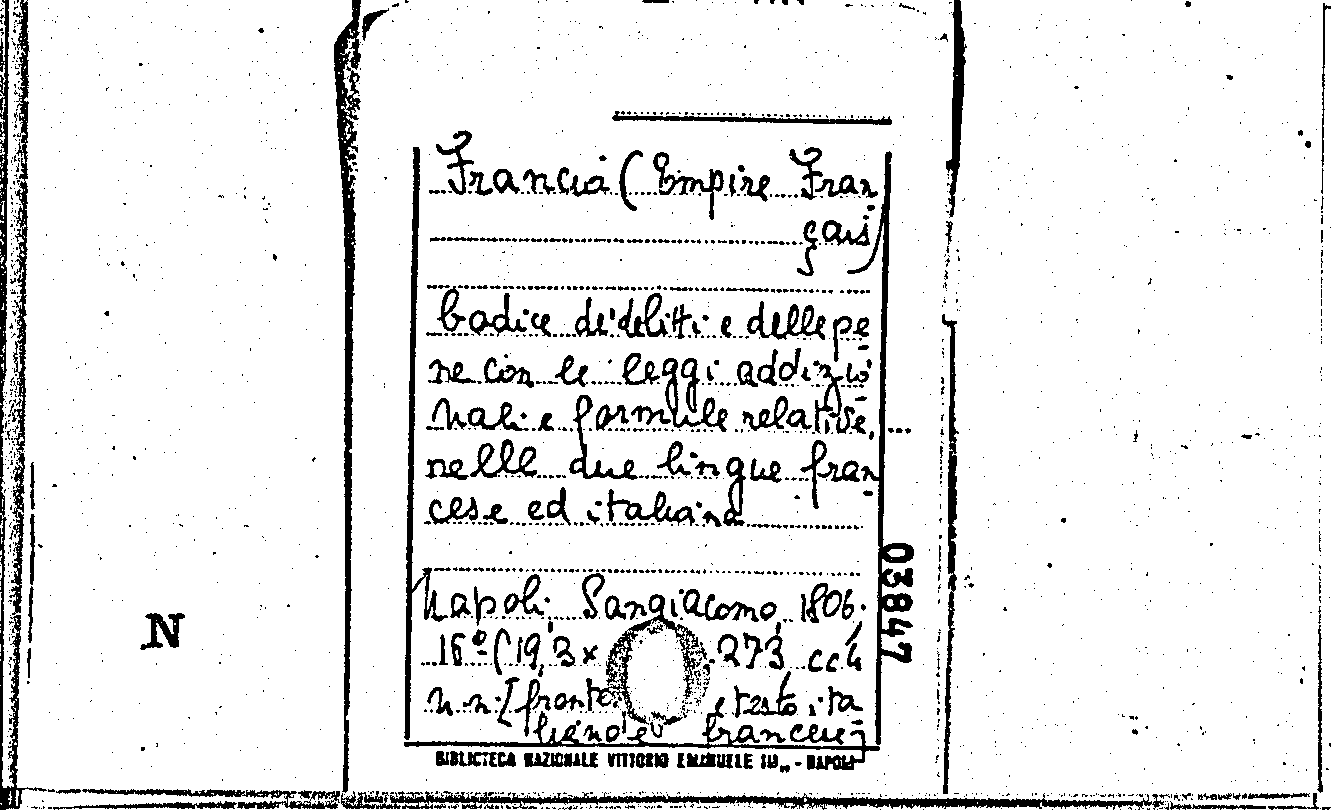 Francia (Empire Fran
çais)
Codice de' delitti e delle pe
ne con le leggi addizio
nali e formule relative, ...
nelle due lingue fran
cese ed italiana
Napoli Sangiacomo, 1806.
16º (19,3 x 273, cc 4
n.n. [fronte e testo ita
liano e francese]
03847
N
BIBLIOTECA NAZIONALE VITTORIO EMANUELE III - NAPOLI